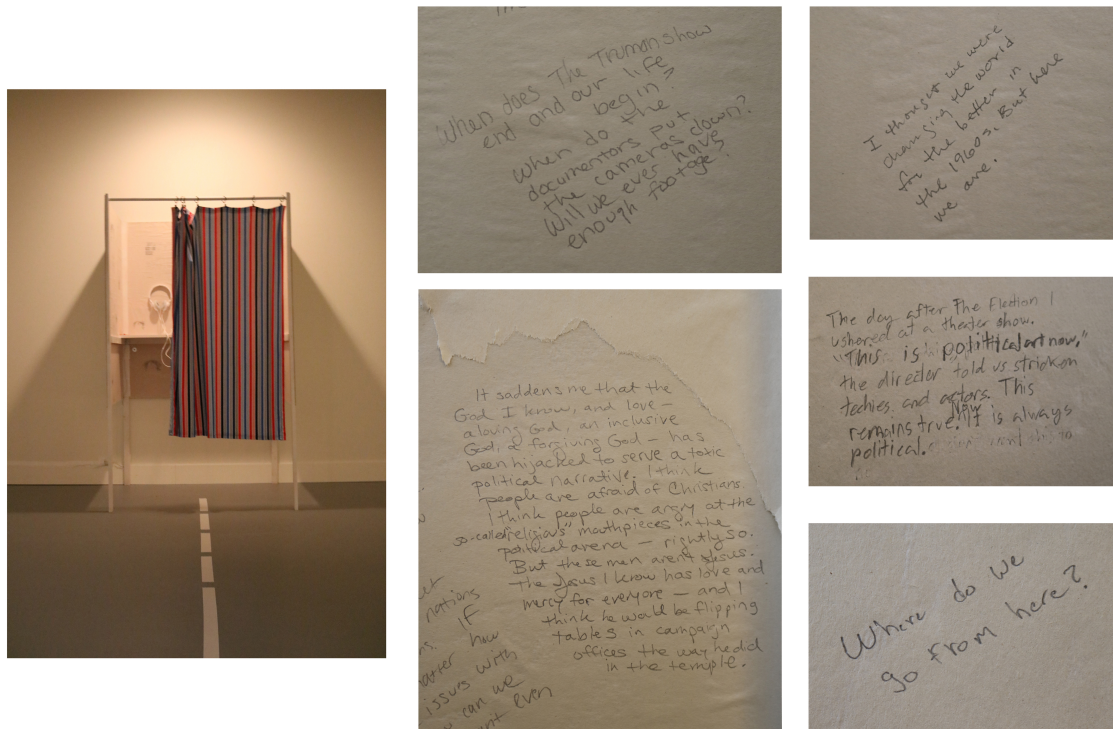 When does The Truman show
end and our life
begin?
When do the
documentors put
the cameras down?
Will we ever have
enough footage?
I thought we were
changing the world
for the better in
the 1960s. But here
we are.
It saddens me that the
God I know, and love –
a loving God, an inclusive
God, a forgiving God – has
been hijacked to serve a toxic
political narrative. I think
people are afraid of Christians.
I think people are angry at the
so-called "religious" mouthpieces in the
political arena – rightly so.
But these men aren't Jesus.
The Jesus I know has love and
mercy for everyone – and I
think he would be flipping
tables in campaign
offices the way he did
in the temple.
nations
IF
how
issues with
can we
even
The day after The Election I
ushered at a theater show.
"This is political art now,"
the director told us stricken
techies and actors. This
remains true. Art is always
political.
Where do we
go from here?